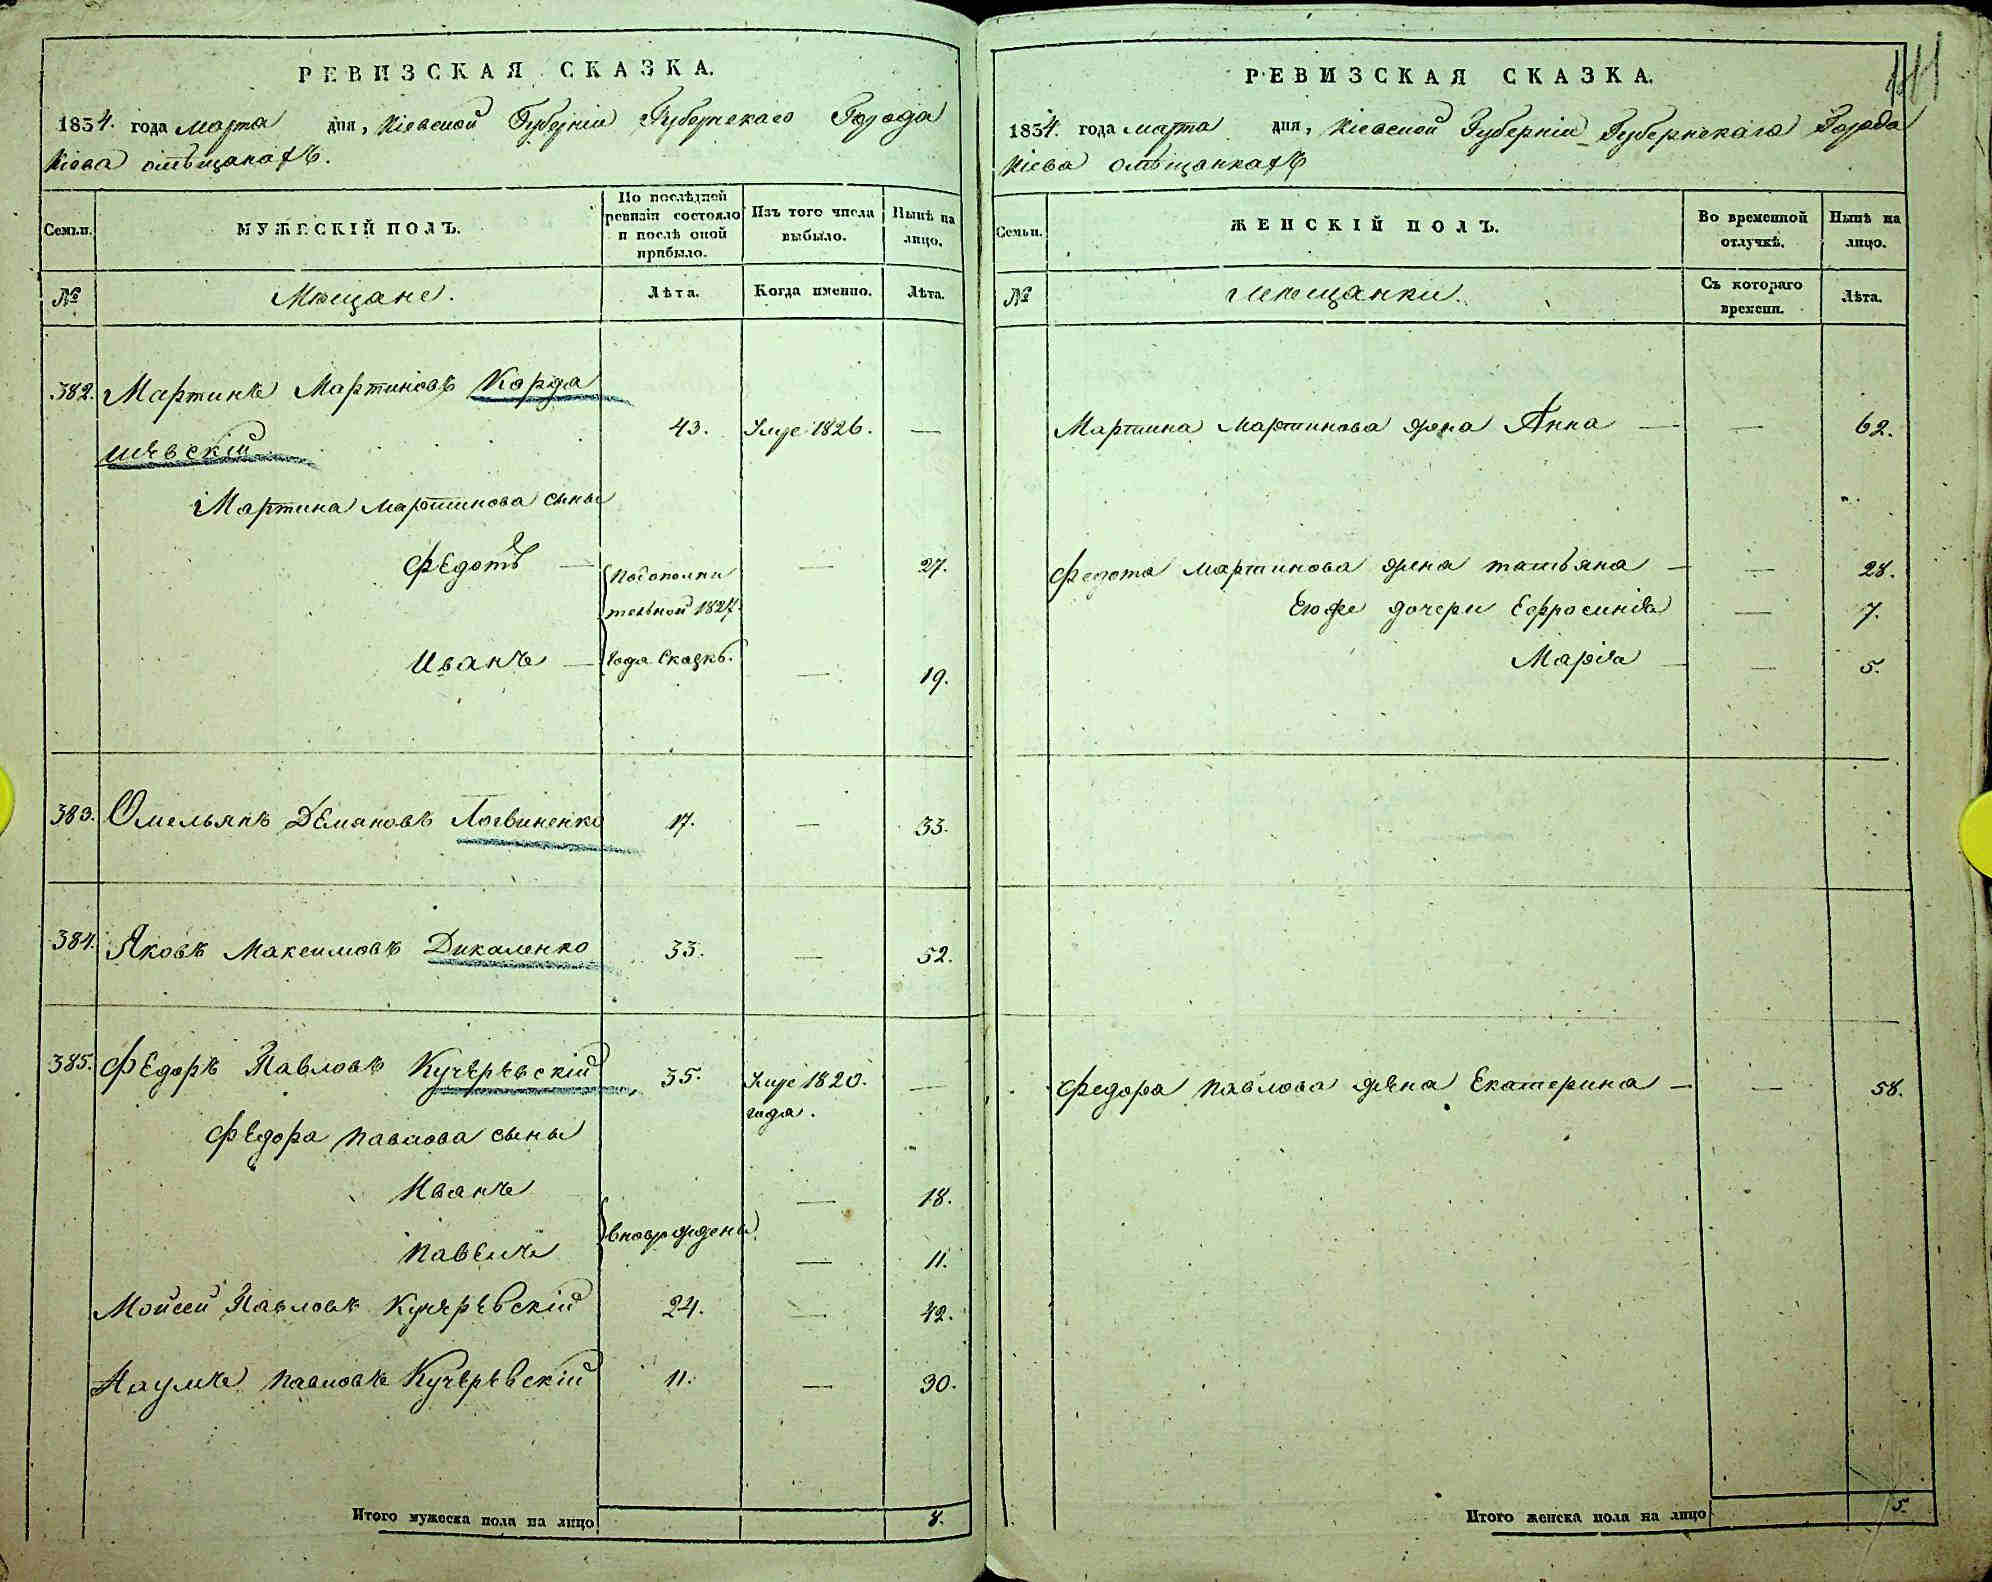 РЕВИЗСКАЯ СКАЗКА.
1834. года марта дня, Кіевской Губерніи Губернскаго Города
Кіева омѣщанахъ.
Семьи. МУЖЕСКІЙ ПОЛЪ. По послѣдней ревизіи состояло и послѣ оной прибыло. Изъ того числа выбыло. Нынѣ на лицо.
№ Мѣщане. Лѣта. Когда именно. Лѣта.
382. Мартинъ Мартиновъ Карда
шевскій 43. Умре 1826. —
Мартина Мартинова сыны
Федотъ — Подополни — 27.
тельной 1827.
Иванъ — года Сказкѣ. — 19.
383. Омельянъ Демяновъ Логвиненко 17. — 33.
384. Яковъ Максимовъ Дикаленко 33. — 52.
385. Федоръ Павловъ Кучеревскій 35. Умре 1820. —
года.
Федора Павлова сыны
Иванъ — 18.
вноврождены
Павелъ — 11.
Мойсей Павловъ Кучеревскій 24. — 42.
Наумъ Павловъ Кучеревскій 11. — 30.
Итого мужеска пола на лицо 8.
РЕВИЗСКАЯ СКАЗКА.
1834. года марта дня, Кіевской Губерніи Губернскаго Города
Кіева омѣщанкахъ
Семьи. ЖЕНСКІЙ ПОЛЪ. Во временной отлучкѣ. Нынѣ на лицо.
№ Мещанки. Съ котораго времени. Лѣта.
Мартина Мартинова жена Анна — — 62.
Федота Мартинова жена татьяна — — 28.
Егоже дочери Ефросинія — 7.
Марія — — 5.
Федора Павлова жена Екатерина — — 58.
Итого женска пола на лицо 5.